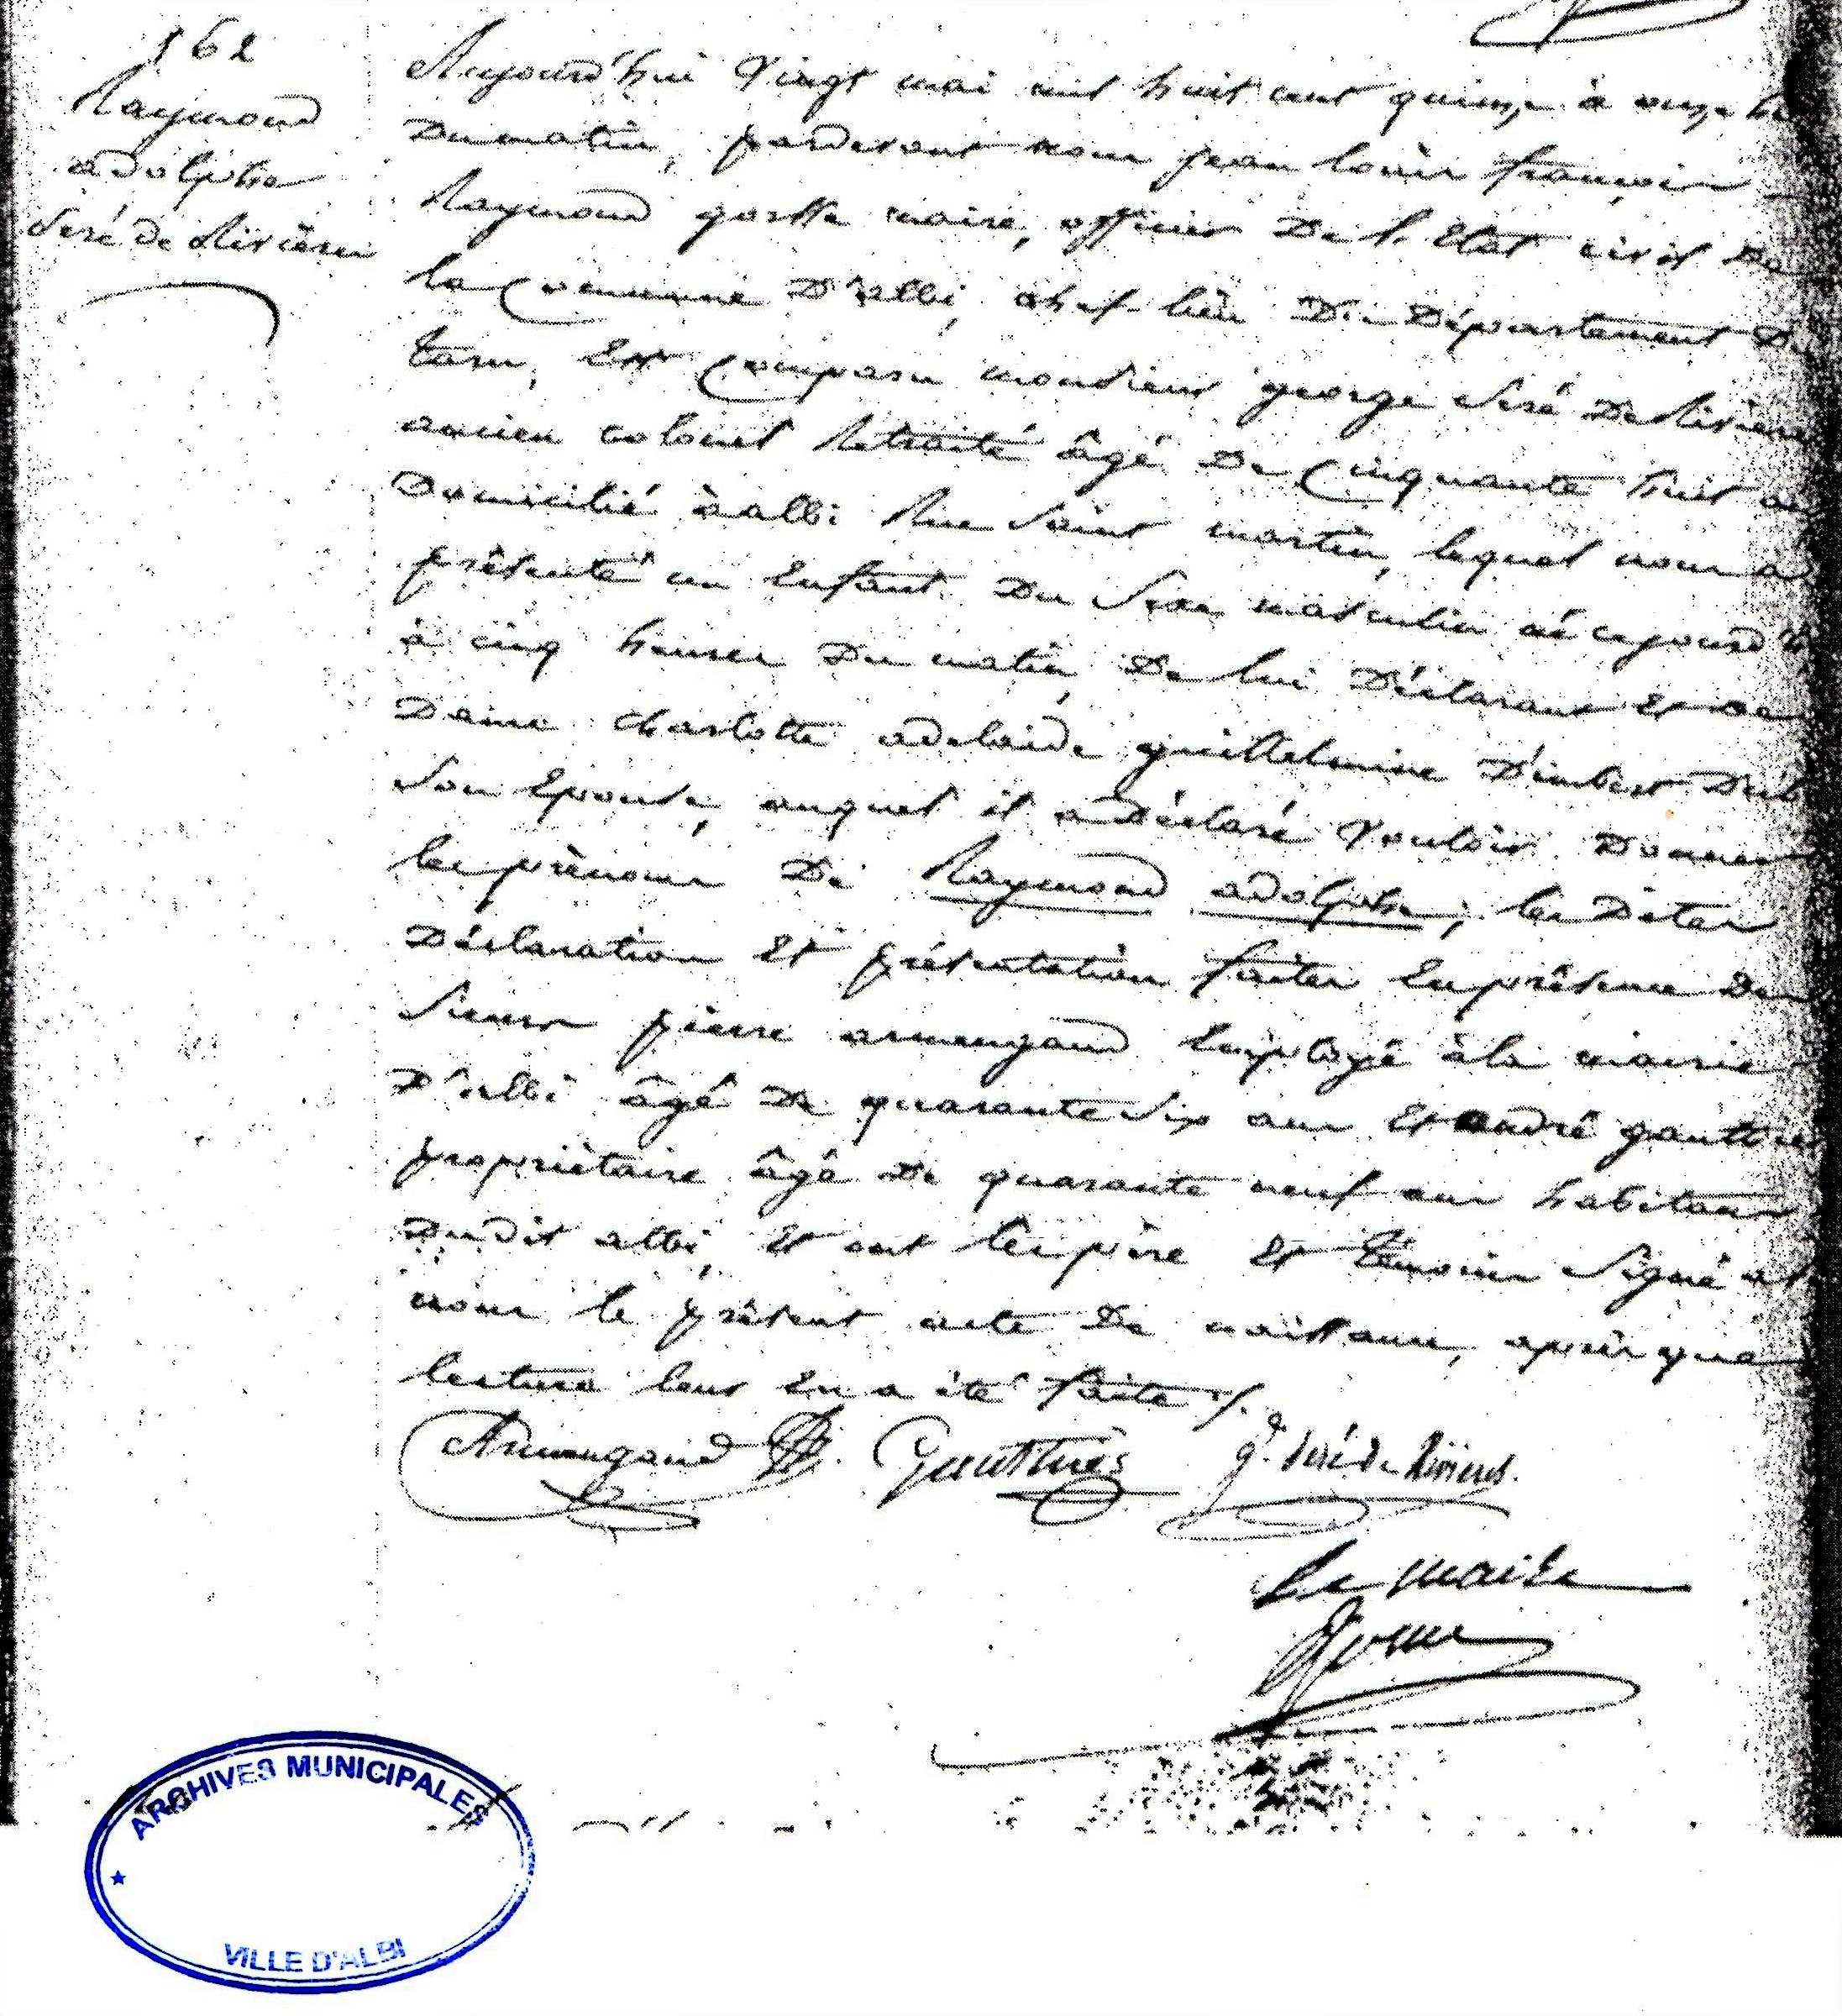 162
Raymond
adolphe
Seré de Rivières
Aujourd'hui vingt mai mil huit cent quinze à onze he
du matin, pardevant nous jean louis françois
Raymond gorsse maire, officier de l'Etat civil de
la Commune d'albi, chef lieu du Département du
tarn, Est Comparu monsieur george Seré de Rivière
ancien colonel Retraité âgé de Cinquante huit a
domicilié à albi Rue Saint martin, lequel nous a
présenté un Enfant du Sexe masculin né cejourd'h
à cinq heures du matin, de lui Déclarant et de
Dame charlotte adelaide guillelmine D'imbert
Son Epouse, auquel il a déclaré Vouloir Donner
les prénoms De Raymond adolphe; les Dites
Déclaration Et présentation faites En présence des
Sieurs pierre armengaud Employé à la mairie
D'albi âgé de quarante Six ans Et andré gauthier
propriétaire âgé de quarante neuf ans habitans
dudit albi, Et ont les père Et témoins Signé
nous le présent acte de naissance, après que
lecture leur En a été faite ./.
Armengaud Gauthier g. Seré de Rivieres.
Le maire
Gorsse
ARCHIVES MUNICIPALES
VILLE D'ALBI